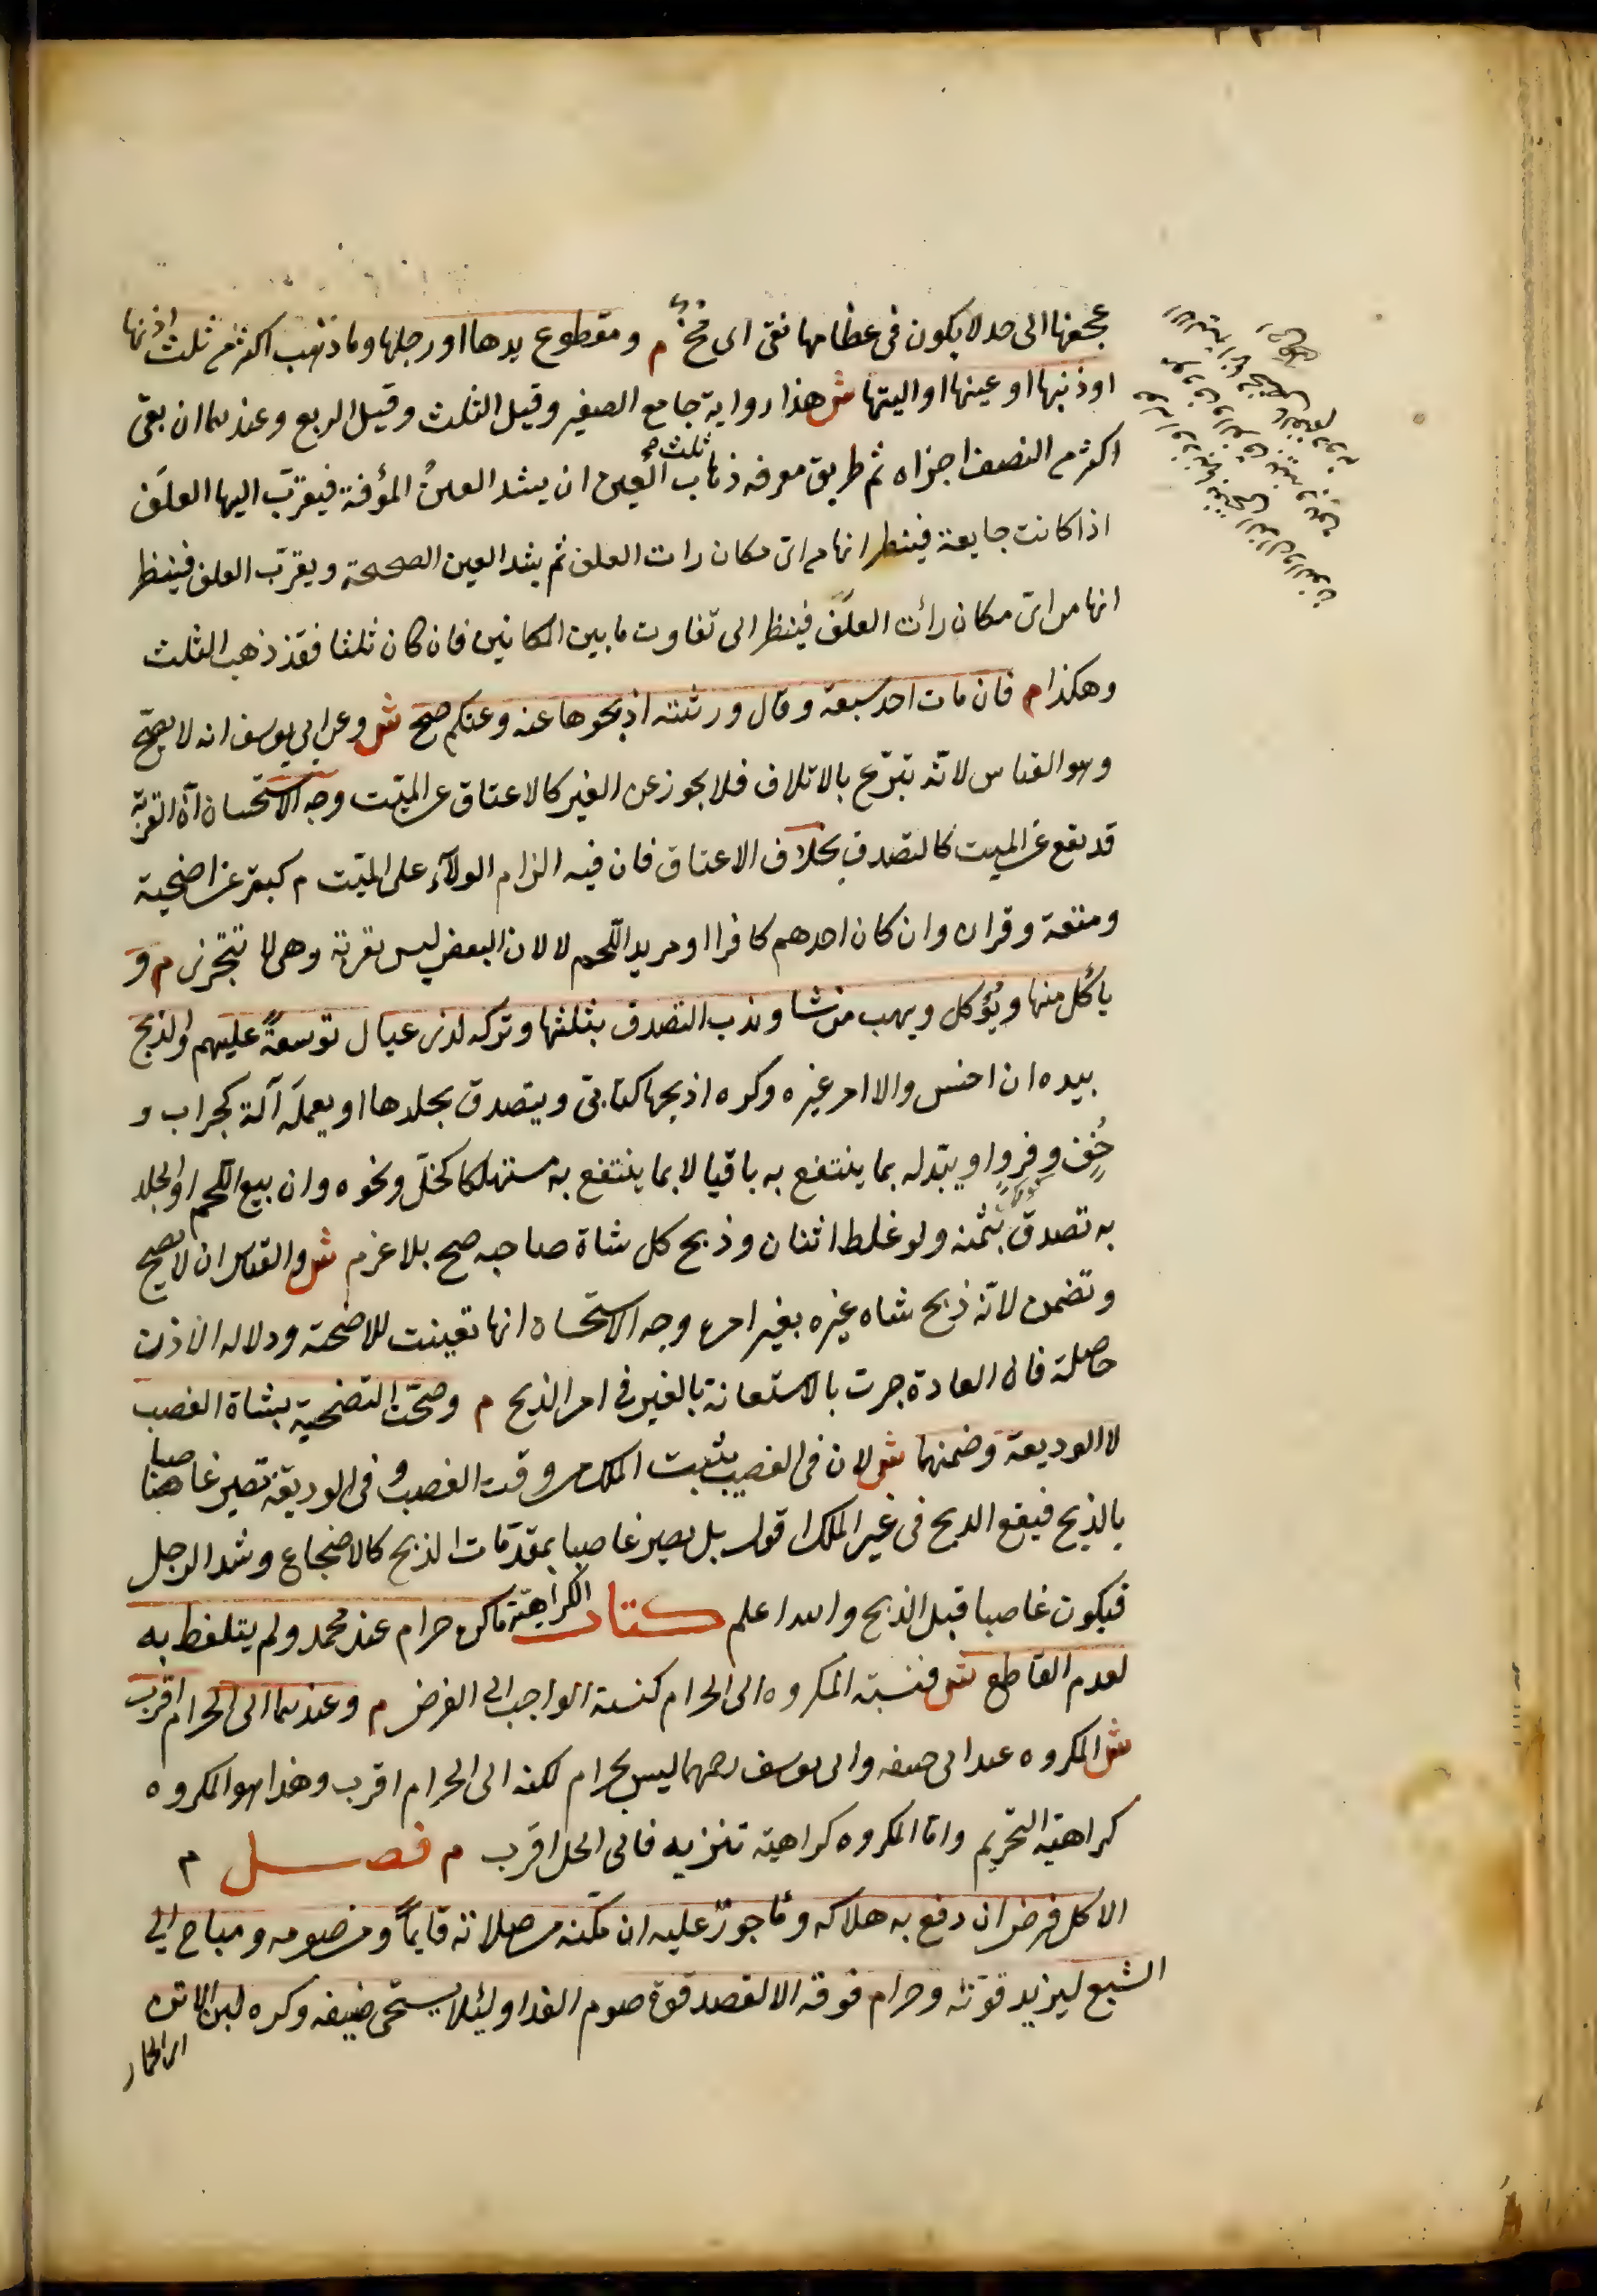 عجفها الى حد لا يكون فى عظامها نقى اى مخ م ومقطوع يدها او رجلها وما ذهب اكثر من ثلث اذنها
او ذنبها او عينها او اليتها ش هذا رواية جامع الصغير وقيل الثلث وقيل الربع وعندهما ان بقى
اكثر من النصف اجزاه ثم طريق معرفه ذهاب ثلث العين ان يشد العينُ المؤفة فيقرّب اليها العلَف
اذا كانت جايعة فينظر انها من اى مكان رات العلف ثم يشد العين الصحيحة ويقرّب العلف فينظر
انها من اى مكان رأت العلَف فينظر الى تفاوت ما بين المكانين فان كان ثلثا فقد ذهب الثلث
وهكذا م فان مات احد سبعة وقال ورثته اذبحوها عنه وعنكم صح ش وعن ابي يوسف انه لا يصحّ
وهو القياس لانّه تبرّع بالاتلاف فلا يجوز عن الغير كالاعتاق عن الميّت وجه الاستحسان انّ القربة
قد تقع عن الميت كالتصدق بخلاف الاعتاق فان فيه الزام الولآء على الميّت م كبقرة عن اضحية
ومتعة وقران وان كان احدهم كافرا او مريد اللّحم لا لان البعض ليس بقربة وهى لا تتجزى م و
يأكل منها ويُؤكل ويهب من شا وندب التصدق بثلثها وتركه لذى عيال توسعةً عليهم والذبح
بيده ان احسن والا امر غيره وكره اذبحها كتابىّ ويتصدق بجلدها او يعمله آلة كجراب و
خُفّ وفروٍ او يبّدله بما ينتفع به باقيا لا بما ينتفع به مستهلكا كخلّ ونحوه وان بيع اللحم او الجلد
به تصدق بثمنه ولو غلط اثنان وذبح كل شاة صاحبه صح بلا غرم ش والقياس ان لا يصح
وتضمن لانّه ذبح شاه غيره بغير امره وجه الاستحسان انها تعينت للاضحية ودلاله الاذن
حاصلة فان العادة جرت بالاستعانة بالغير فى امر الذبح م وصحّت التضحية بشاة الغصب
لا الوديعة وضمنها ش لان فى الغصب يثبت الملك من وقت الغصب وفى الوديعة تصير غاصبا
بالذبح فيقع الذبح فى غير الملك اقول بل يصير غاصبا بمقدّمات الذبح كالاضجاع وشد الرجل
فيكون غاصبا قبل الذبح والله اعلم كتاب الكراهية ما كره حرام عند محمد ولم يتلفظ به
لعدم القاطع ش فنسبة المكروه الى الحرام كنسبة الواجب الى الفرض م وعندهما الى الحرام اقرب
ش المكروه عند ابى حنيفه وابى يوسف رحمهما ليس بحرام لكنه الى الحرام اقرب وهذا هو المكروه
كراهية التحريم وامّا المكروه كراهية تنزيه فالى الحل اقرب م فصل م
الاكل فرض ان دفع به هلاكه ومأجورٌ عليه ان مكّنه من صلاته قايماً ومن صومه ومباح الى
الشبع ليزيد قوّته وحرام فوقه الا لقصد قوة صوم الغد او لئلا يستحى ضيفه وكره لبن الاتن